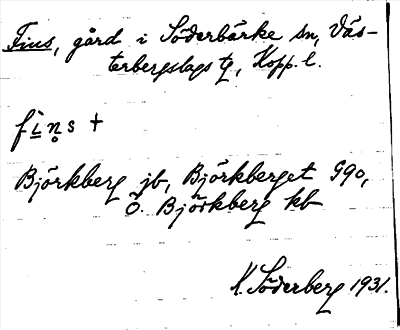 Fins, gård i Söderbärke sn, Väs-
terbergslags tg, Kopp. l.
fi̠n̥s +
Björkberg jb, Björkberget GGo,
Ö. Björkberg kb
K. Söderberg 1931.